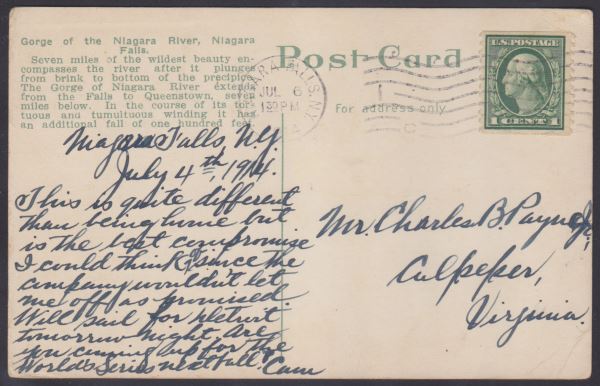 Gorge of the Niagara River, Niagara
Falls.
Seven miles of the wildest beauty en-
compasses the river after it plunges
from brink to bottom of the precipice.
The Gorge of Niagara River extends
from the Falls to Queenstown, seven
miles below. In the course of its tor-
tuous and tumultuous winding it has
an additional fall of one hundred feet.
Post Card
For address only
JUL 6
130PM
U.S. POSTAGE
1 CENT 1
Niagara Falls, N.Y.
July 4th, 1914.
This is quite different
than being home but
is the best compromise
I could think of since the
company wouldn't let
me off as promised.
Will sail for Detroit
tomorrow night. Are
you coming up for the
World's Series next Fall. Cam
Mr. Charles B. Payne, Jr.
Culpeper,
Virginia.